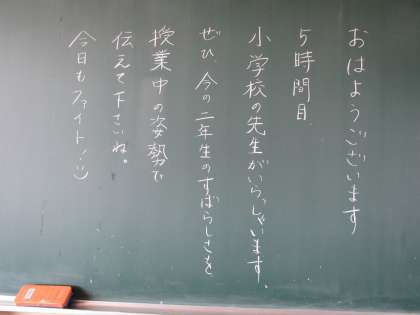 おはようございます
5時間目、
小学校の先生がいらっしゃいます。
ぜひ、今の二年生のすばらしさを
授業中の姿勢で
伝えて下さいね。
今日もファイト!:)